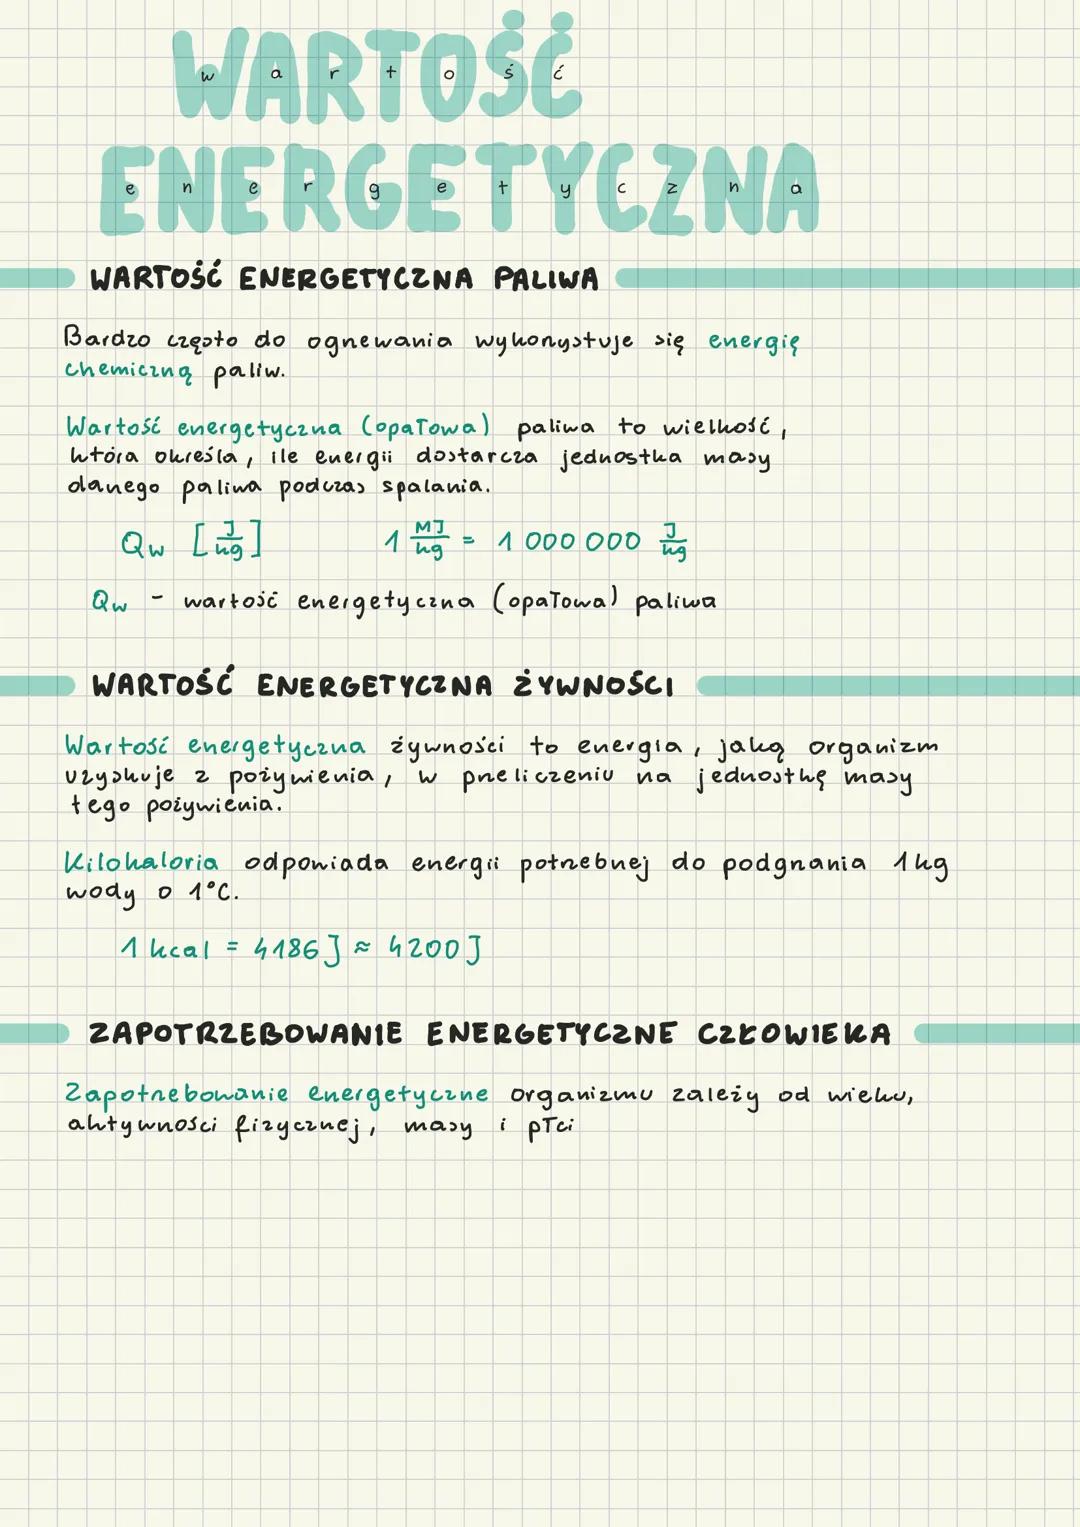 WARTOŚĆ
w a r t o ś ć
ENERGETYCZNA
e n e r g e t y c z n a
WARTOŚĆ ENERGETYCZNA PALIWA
Bardzo często do ogrzewania wykorzystuje się energię
chemiczną paliw.
Wartość energetyczna (opałowa) paliwa to wielkość,
która określa, ile energii dostarcza jednostka masy
danego paliwa podczas spalania.
Qw [J/kg] 1 MJ/kg = 1 000 000 J/kg
Qw - wartość energetyczna (opałowa) paliwa
WARTOŚĆ ENERGETYCZNA ŻYWNOŚCI
Wartość energetyczna żywności to energia, jaką organizm
uzyskuje z pożywienia, w przeliczeniu na jednostkę masy
tego pożywienia.
Kilokaloria odpowiada energii potrzebnej do podgrzania 1kg
wody o 1°C.
1 kcal = 4186 J ≈ 4200 J
ZAPOTRZEBOWANIE ENERGETYCZNE CZŁOWIEKA
Zapotrzebowanie energetyczne organizmu zależy od wieku,
aktywności fizycznej, masy i płci